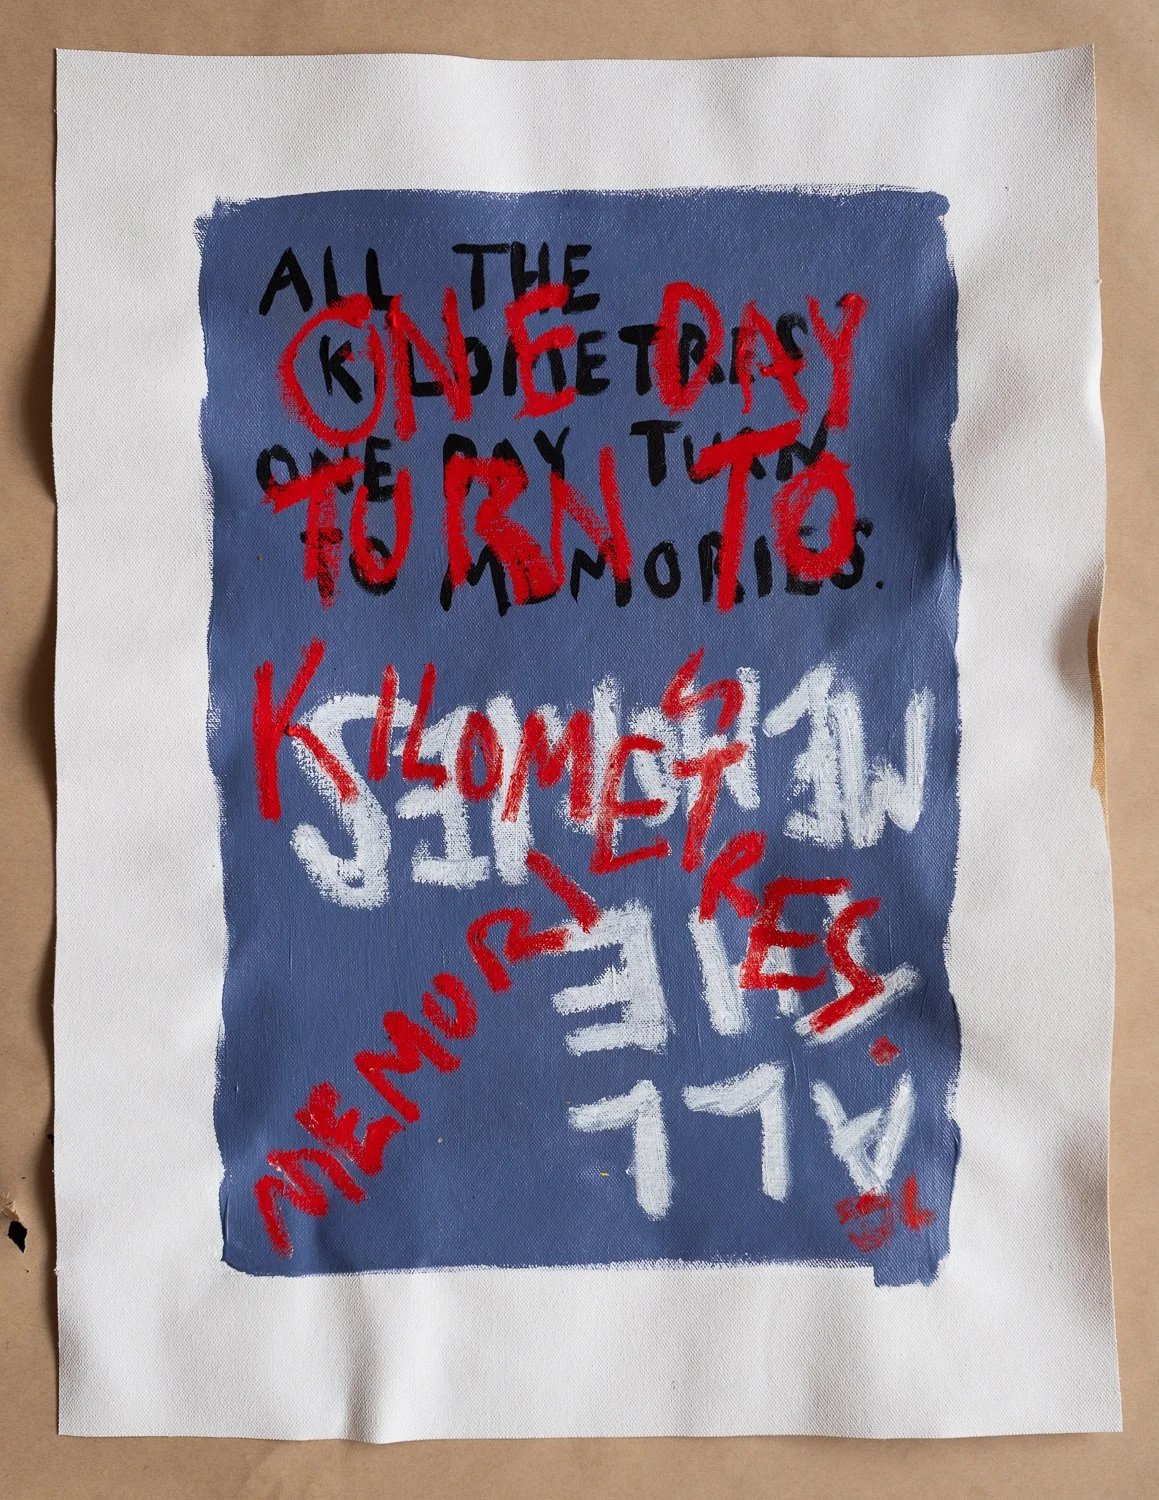 ALL THE
KILOMETRES
ONE DAY TURN
TO MEMORIES.
ONE DAY
TURN TO
KILOMETRES.
MEMORIES
ALL
THE
MEMORIES